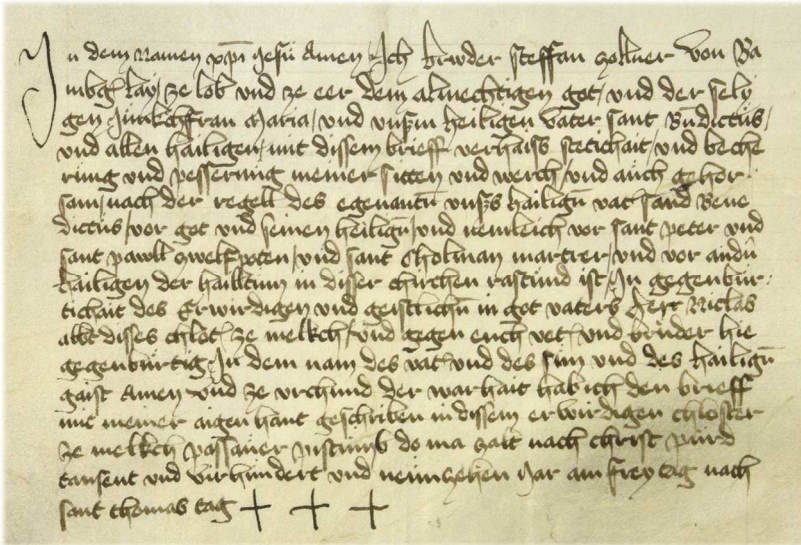 In dem namen xpi Jesu Amen Ich brwder steffan zollner von Ba
mbg lay ze lob und ze eer dem almechtigen got und der sely
gen Junkchfrau Maria und unsm heiligen vater sant Bndictus
und allen hailigen mit dissem brieff verhaiss stetichait und beche
rung und pesserung meiner sitten und werch und auch gehor
sam nach der regell des egenantn unss hailign vat sand Bene
dictus vor got und seinen heilign und nemleich vor sant peter und
sant pawll zwelfpoten und sant Cholman martrer und vor andn
hailigen der hailtum in disser chirchen rastund ist In gegenbür
tichait des Erwirdigen und geistlichn in got vaters herr Niclas
abbt disses chlot ze melkch und gegen euch vet und bruder hie
gegenbürtig In dem nam des vat und des sun und des hailign
gaist Amen und ze vrchund der warhait hab ich den brieff
mit meiner aigen hant geschriben in dissem erwirdigen chloster
ze melkch passauer pistumb do ma zalt nach christ pürd
tausent und virhundert und neunzehen Jar am freytag nach
sant thomas tag + + +